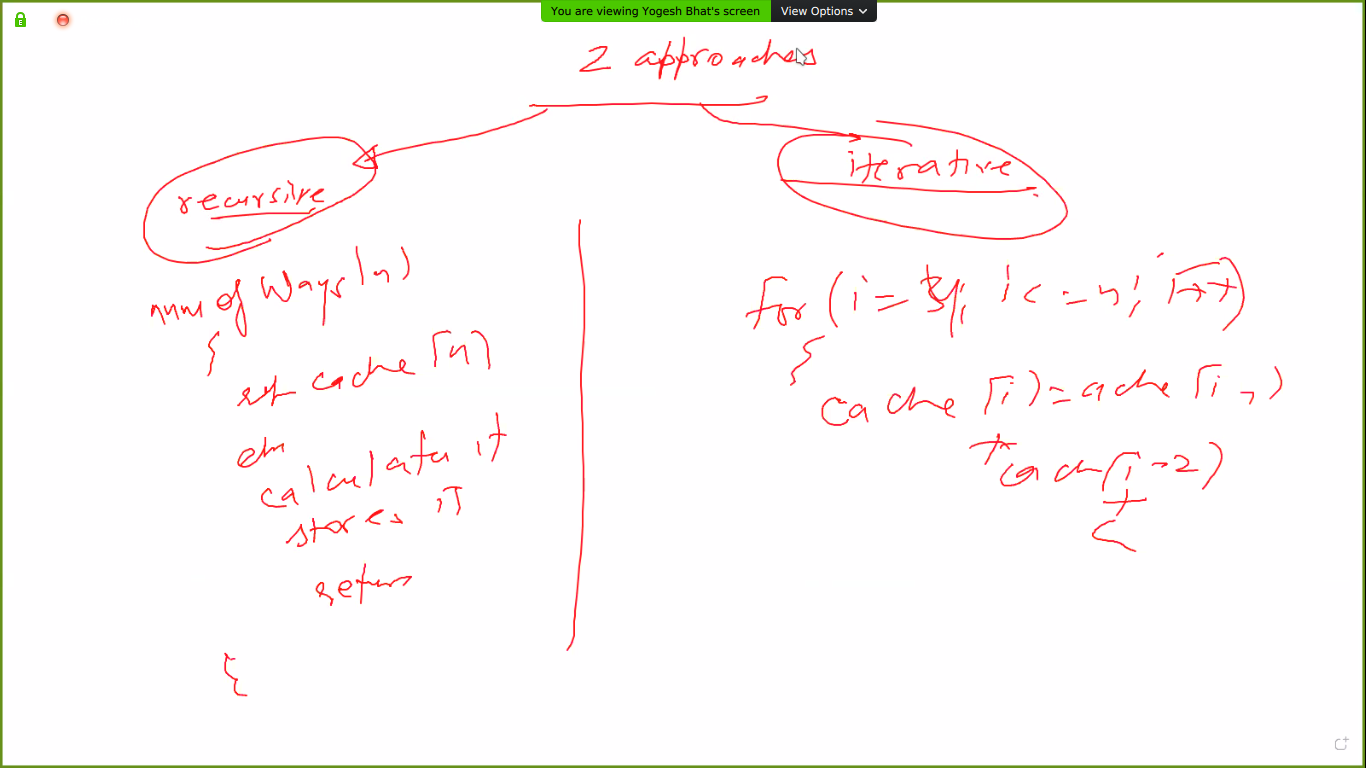 You are viewing Yogesh Bhat's screen View Options
2 approaches
recursive
iterative
num of Ways (n)
{
ret cache [n]
calculates it
stores it
return
}
for (i = 3; i <= n; i++)
{
cache [i] = cache [i-1]
+ cache [i-2]